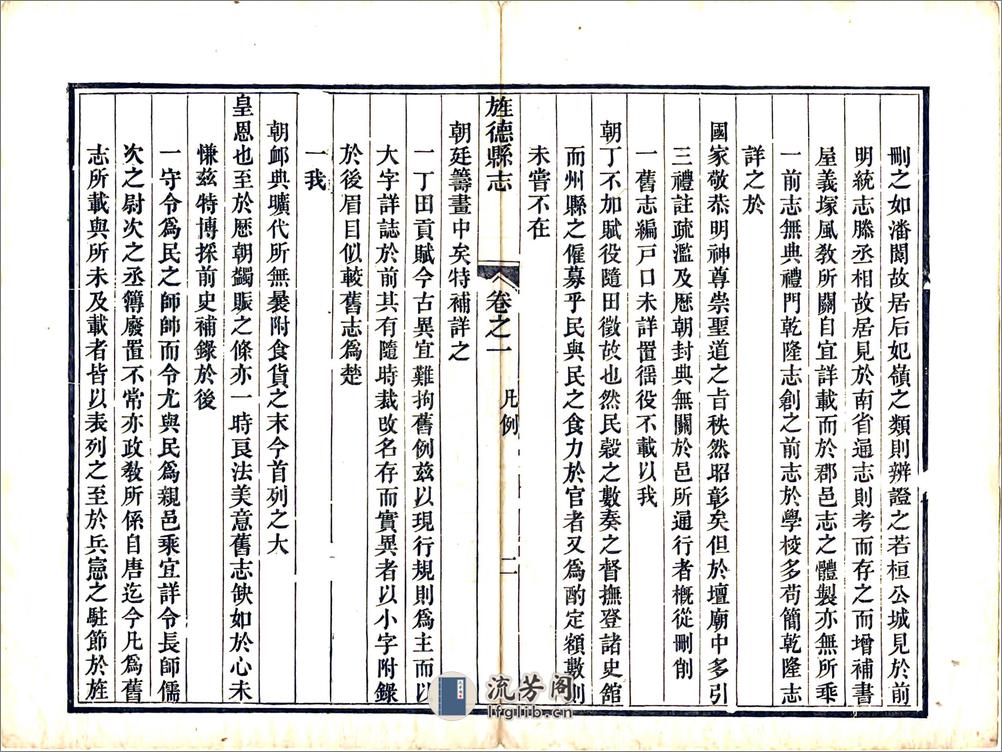 刪之如潘閬故居后妃嶺之類則辨證之若桓公城見於前
明統志滕丞相故居見於南省通志則考而存之而增補書
屋義塚風敎所關自宜詳載而於郡邑志之體製亦無所乖
一前志無典禮門乾隆志創之前志於學校多苟簡乾隆志
詳之於
國家敬恭明神尊崇聖道之㫖秩然昭彰矣但於壇廟中多引
三禮註疏濫及歴朝封典無關於邑所通行者槪從刪削
一舊志編戸口未詳置徭役不載以我
朝丁不加賦役隨田徵故也然民穀之數奏之督撫登諸史館
而州縣之僱募乎民與民之食力於官者又爲酌定額數則
未嘗不在
旌德縣志
卷之一
凡例
二
朝廷籌畫中矣特補詳之
一丁田貢賦今古異宜難拘舊例兹以現行規則爲主而以
大字詳誌於前其有隨時裁改名存而實異者以小字附錄
於後眉目似較舊志爲楚
一我
朝卹典曠代所無曩附食貨之末今首列之大
皇恩也至於歴朝蠲賑之條亦一時良法美意舊志缺如於心未
慊兹特博採前史補錄於後
一守令爲民之師師而令尤與民爲親邑乘宜詳令長師儒
次之尉次之丞簿廢置不常亦政敎所係自唐迄今凡爲舊
志所載與所未及載者皆以表列之至於兵憲之駐節於旌
流芳阁
lfglib.cn